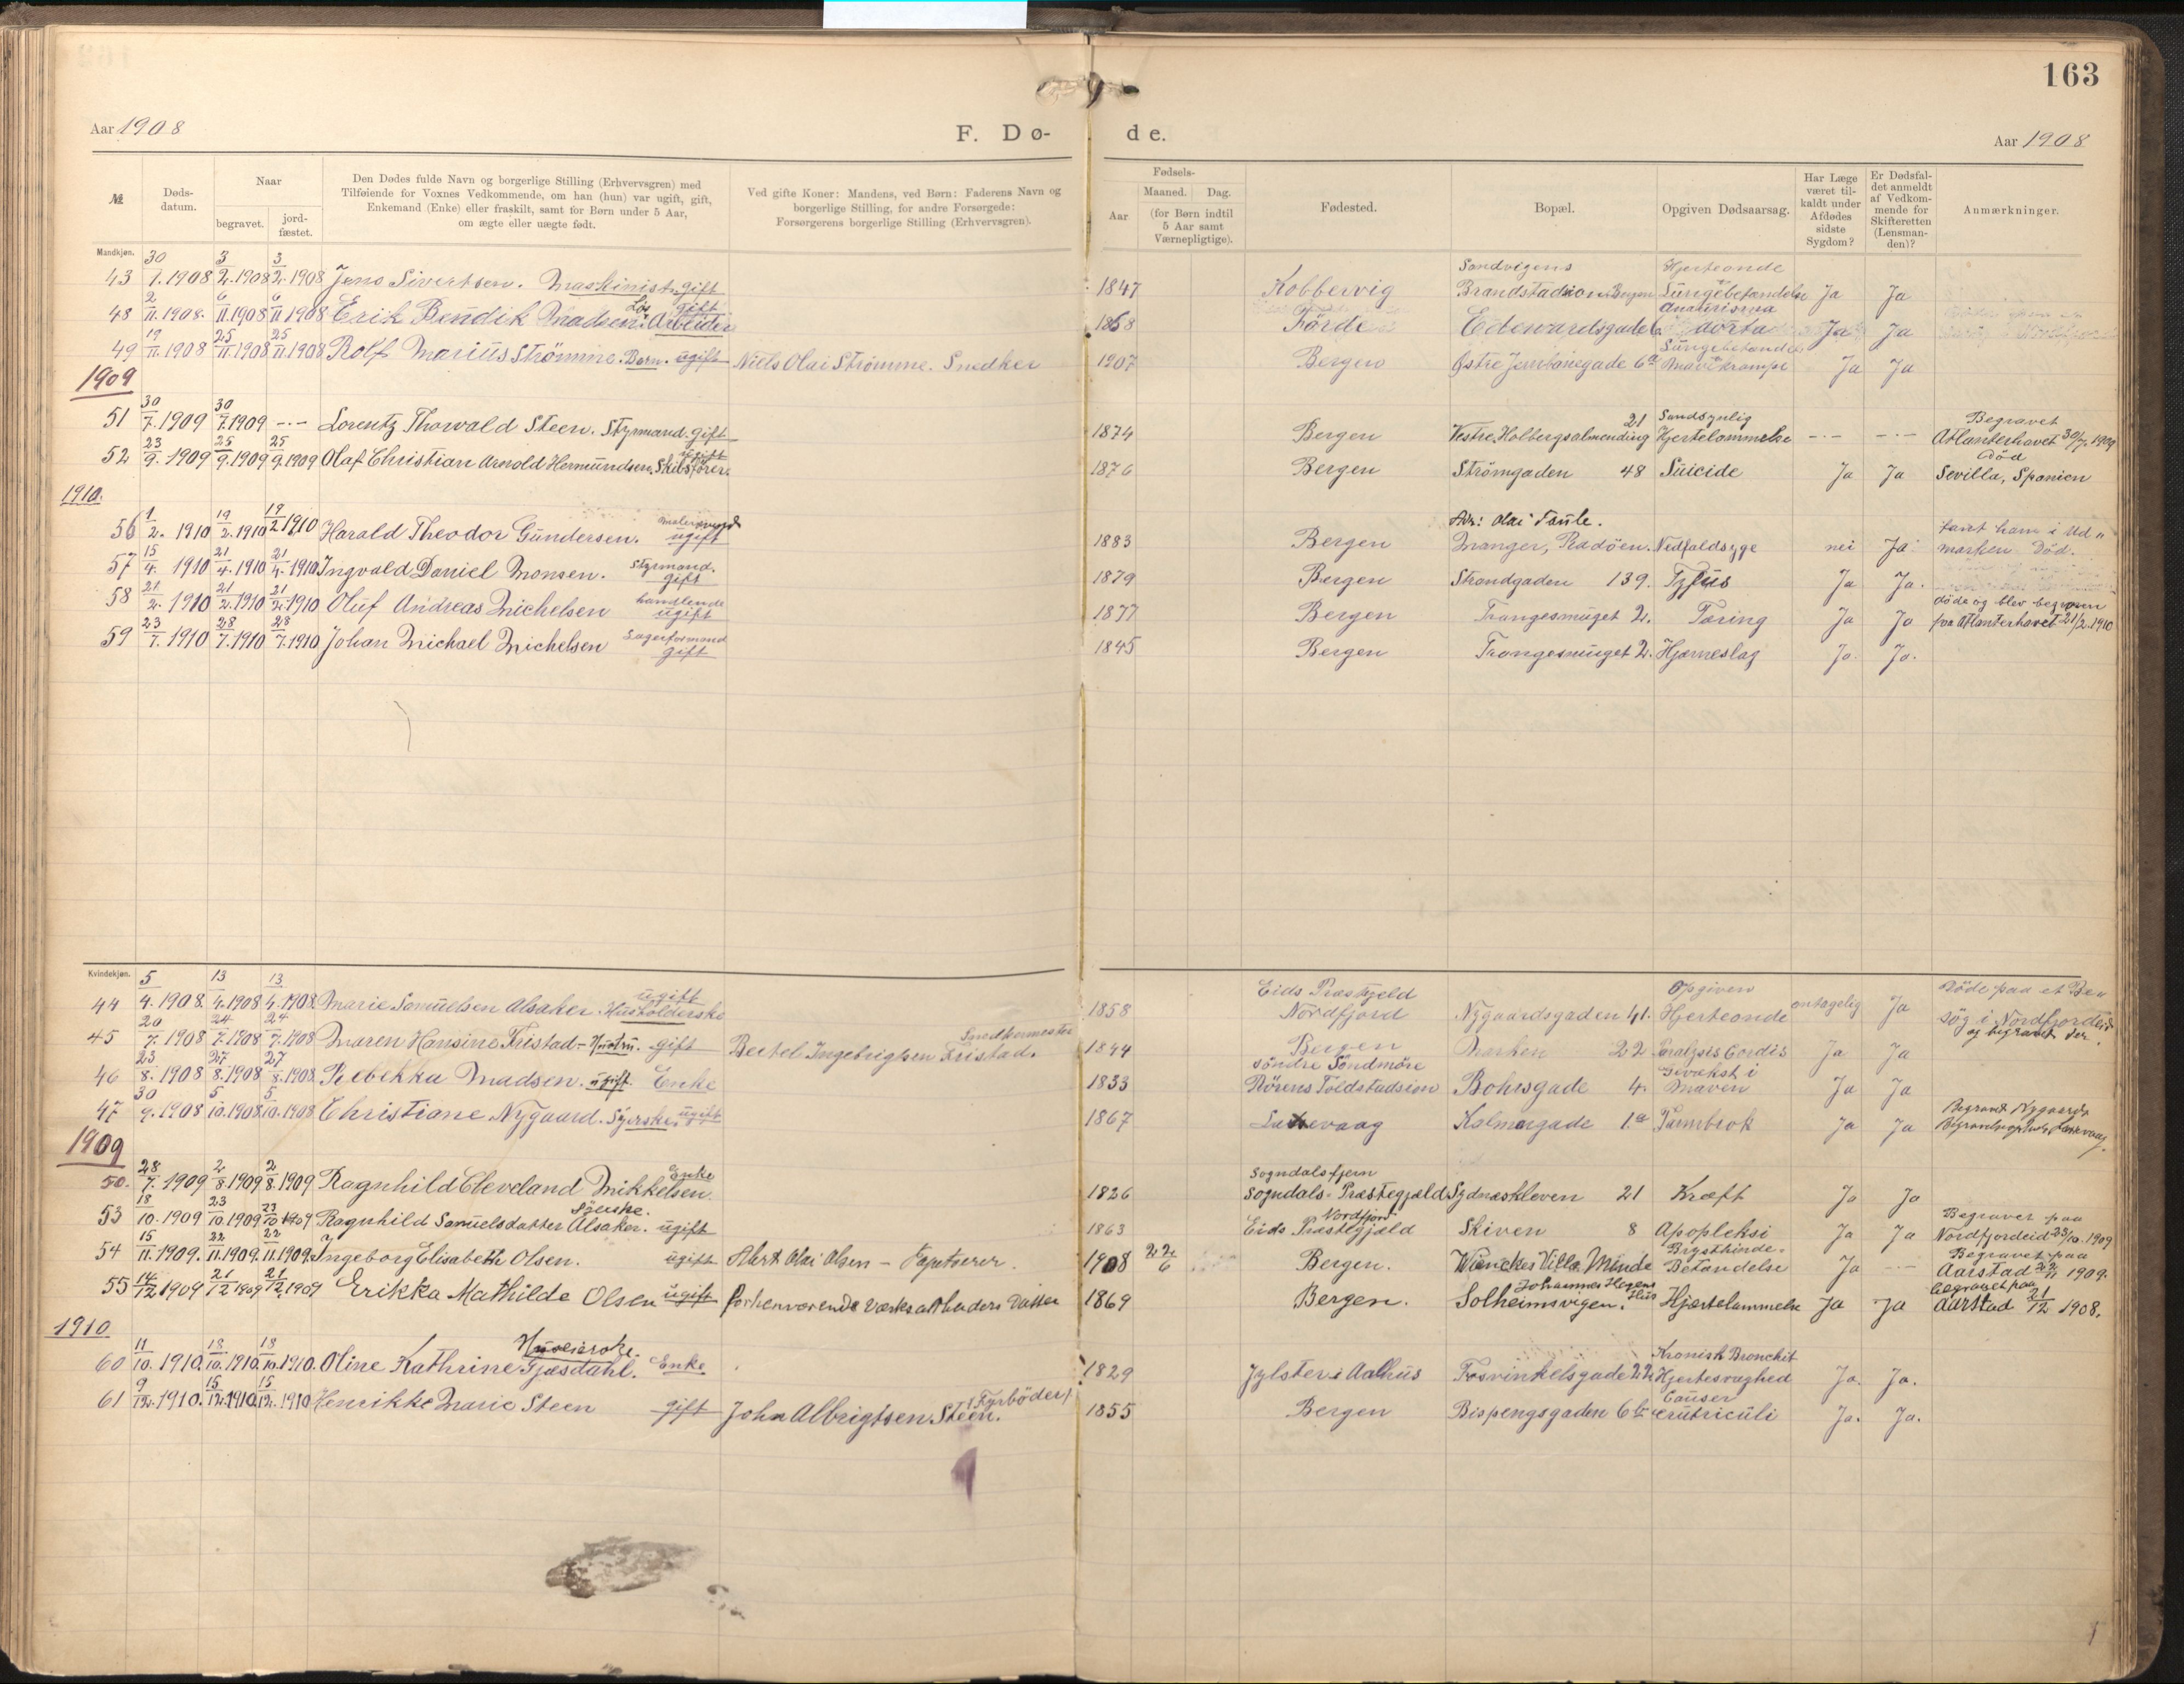 163
Aar 1908
F. Dø- de.
Aar 1908
№
Døds-datum.
Naar
begravet.
jord-fæstet.
Den Dødes fulde Navn og borgerlige Stilling (Erhvervsgren) med
Tilføiende for Voxnes Vedkommende, om han (hun) var ugift, gift,
Enkemand (Enke) eller fraskilt, samt for Børn under 5 Aar,
om ægte eller uægte født.
Ved gifte Koner: Mandens, ved Børn: Faderens Navn og
borgerlige Stilling, for andre Forsørgede:
Forsørgerens borgerlige Stilling (Erhvervsgren).
Fødsels-
Aar
Maaned. Dag.
(for Børn indtil
5 Aar samt
Værnepligtige).
Fødested.
Bopæl.
Opgiven Dødsaarsag.
Har Læge
været til-
kaldt under
Afdødes
sidste
Sygdom?
Er Dødsfal-
det anmeldt
af Vedkom-
mende for
Skifteretten
(Lensman-
den)?
Anmærkninger.
Mandkjøn.
43 30/1. 1908 3/2. 1908 3/2. 1908 Jens Sivertsen. Maskinist gift 1847 Kobbervig Sandvigens Brandstadion Bergen Hjerteonde Lungebetændelse Ja Ja
48 2/11. 1908. 6/11 1908 6/11 1908 Erik Bendik Madsen. Løs Arbeider gift 1858 Førde Edewardsgade 6. aorta Ja Ja
49 19/11 1908 25/11 1908 25/11 1908 Rolf Marius Strømme. Barn. ugift Niels Olai Strømme. Snedker 1907 Bergen Østre Jernbanegade 6a Lungebetændelse Mavekrampe Ja Ja
1909
51 30/7. 1909 30/7 1909 -.- Lorentz Thorvald Steen. Styrmand. gift 1874 Bergen Vestre Holbergsalmending 21 Sandsynlig Hjertelammelse -.- -.- Begravet Atlanterhavet 30/7. 1909
52 23/9. 1909 25/9. 1909 25/9. 1909 Olaf Christian Arnold Hermundsen. Skibsfører. ugift 1876 Bergen Strømgaden 48 Suicide Ja Ja Død Sevilla, Spanien
1910.
56 1/2. 1910 19/2. 1910 19/2 1910 Harald Theodor Gundersen. ugift 1883 Bergen Adr: Olai Taule. Manger, Radøen. Nedfaldsyge nei Ja fant ham i Ud„ marken Død.
57 15/4. 1910 21/4. 1910 21/4. 1910 Ingvald Daniel Monsen. Styrmand. gift 1879 Bergen Strandgaden 139. Tyfus Ja Ja.
58 21/2. 1910 21/2. 1910 21/2. 1910 Oluf Andreas Michelsen handlende ugift 1877 Bergen Trangesmuget 2. Tæring Ja Ja døde og blev begraven paa Atlanterhavet 21/2. 1910
59 23/7. 1910 28/7. 1910 28/7. 1910 Johan Michael Michelsen Sagerformand gift 1845 Bergen Trangesmuget 2. Hjerneslag Ja. Ja.
Kvindekjøn.
44 5/4. 1908. 13/4. 1908 13/4. 1908. Marie Samuelsen Alsaker. Husholderske ugift 1858 Eids Præstgjeld Nordfjord Nygaardsgaden 41. Opgiven Hjerteonde antagelig Ja Døde paa et Be„ søg i Nordfjordeid og begravet der.
45 20/7. 1908 24/7. 1908 24/7. 1908 Maren Hansine Fristad - Hustru. gift Bertel Ingebrigtsen Fristad. Snedkermester 1844 Bergen Marken 22 Paralysis Cordis Ja Ja
46 23/8. 1908 27/8. 1908 27/8. 1908. Rebekka Madsen. ugift. Enke 1833 søndre Søndmøre Rørens Toldstadsion Bohrsgade 4. Gevækst i Maven Ja Ja
47 30/9. 1908 5/10. 1908 5/10. 1908 Christiane Nygaard. Syerske. ugift 1867 Laxevaag Kalmargade 1.a Tarmbrok Ja Ja Begravet Nygaards Laxevaag.
1909
50. 28/7. 1909 2/8. 1909 2/8. 1909 Ragnhild Cleveland Mikkelsen. Enke 1826 Sogndalsfjern Sogndals-Præstegjæld Sydneskleven 21 Kræft Ja Ja
53 18/10. 1909 23/10. 1909 23/10 1909 Ragnhild Samuelsdatter Alsaker. Syerske. ugift 1863 Eids Præstegjæld Nordfjord Skiven 8 Apopleksi Ja Ja Begravet paa Nordfjordeid 23/10. 1909
54 15/11. 1909. 22/11. 1909. 22/11. 1909. Ingeborg Elisabeth Olsen. ugift Olai Olsen - Tapetserer. 1908 22/6 Bergen. Wienckes Villa. Minde Brysthinde- Betændelse Ja -- Begravet paa Aarstad 22/11 1909.
55 14/12 1909 21/12 1909 21/12 1909 Erikka Mathilde Olsen ugift forhenværende Datter 1869 Bergen. Solheimsvigen. Johannes Hus Hjertelammelse Ja Ja begravet paa Aarstad 21/12 1908.
1910
60 11/10. 1910. 18/10. 1910. 18/10. 1910. Oline Kathrine Gjæsdahl. Enke 1829 Jylster i Aalhus Fosvinkelsgade 22 Kronisk Bronchit Hjertesvaghed Ja. Ja.
61 9/12. 1910. 15/12. 1910 15/12. 1910 Henrikke Marie Steen gift John Albrigtsen Steen. (Fyrbøder) 1855 Bergen Bispengsgaden 6b Ja. Ja.